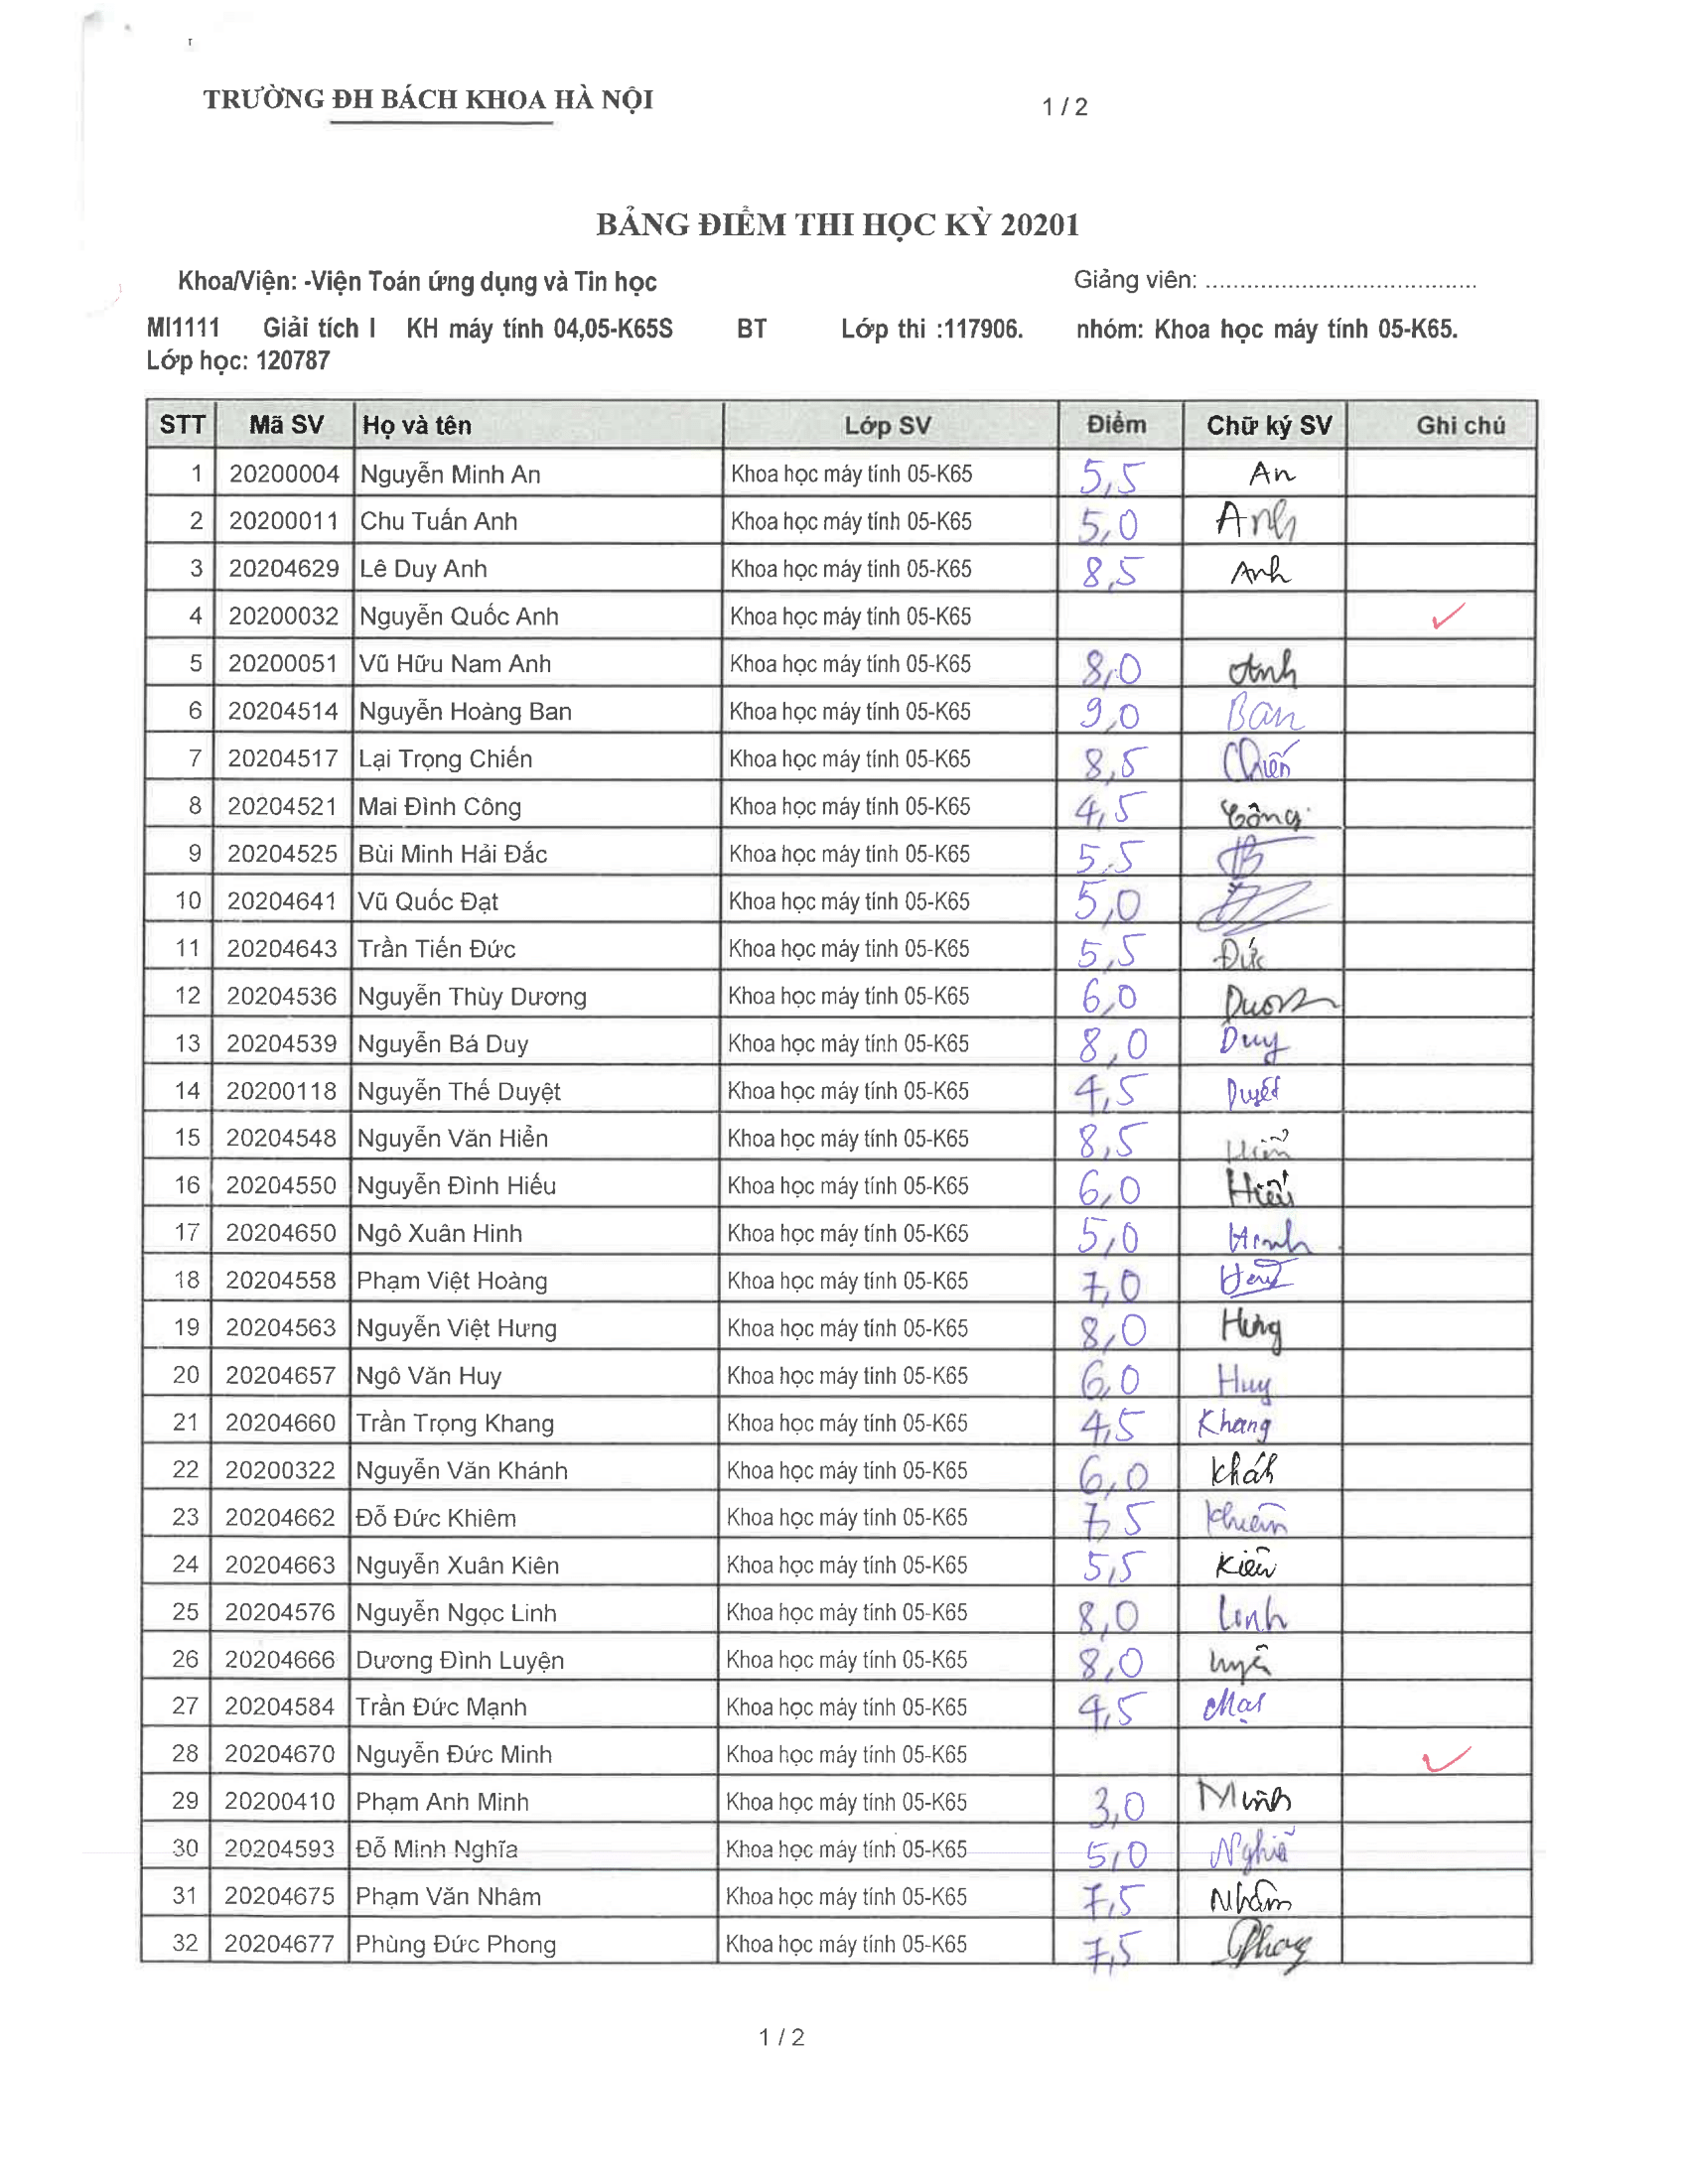 TRƯỜNG ĐH BÁCH KHOA HÀ NỘI
1 / 2
BẢNG ĐIỂM THI HỌC KỲ 20201
Khoa/Viện: -Viện Toán ứng dụng và Tin học Giảng viên: ........................................
MI1111 Giải tích I KH máy tính 04,05-K65S BT Lớp thi :117906. nhóm: Khoa học máy tính 05-K65.
Lớp học: 120787
STT Mã SV Họ và tên Lớp SV Điểm Chữ ký SV Ghi chú
1 20200004 Nguyễn Minh An Khoa học máy tính 05-K65 5,5 An
2 20200011 Chu Tuấn Anh Khoa học máy tính 05-K65 5,0 Anh
3 20204629 Lê Duy Anh Khoa học máy tính 05-K65 8,5 Anh
4 20200032 Nguyễn Quốc Anh Khoa học máy tính 05-K65 ✓
5 20200051 Vũ Hữu Nam Anh Khoa học máy tính 05-K65 8,0 Anh
6 20204514 Nguyễn Hoàng Ban Khoa học máy tính 05-K65 9,0 Ban
7 20204517 Lại Trọng Chiến Khoa học máy tính 05-K65 8,5 Chiến
8 20204521 Mai Đình Công Khoa học máy tính 05-K65 4,5 Công
9 20204525 Bùi Minh Hải Đắc Khoa học máy tính 05-K65 5,5
10 20204641 Vũ Quốc Đạt Khoa học máy tính 05-K65 5,0
11 20204643 Trần Tiến Đức Khoa học máy tính 05-K65 5,5 Đức
12 20204536 Nguyễn Thùy Dương Khoa học máy tính 05-K65 6,0
13 20204539 Nguyễn Bá Duy Khoa học máy tính 05-K65 8,0 Duy
14 20200118 Nguyễn Thế Duyệt Khoa học máy tính 05-K65 4,5 Duyệt
15 20204548 Nguyễn Văn Hiển Khoa học máy tính 05-K65 8,5 Hiển
16 20204550 Nguyễn Đình Hiếu Khoa học máy tính 05-K65 6,0 Hiếu
17 20204650 Ngô Xuân Hinh Khoa học máy tính 05-K65 5,0 Hinh
18 20204558 Phạm Việt Hoàng Khoa học máy tính 05-K65 7,0
19 20204563 Nguyễn Việt Hưng Khoa học máy tính 05-K65 8,0 Hưng
20 20204657 Ngô Văn Huy Khoa học máy tính 05-K65 6,0 Huy
21 20204660 Trần Trọng Khang Khoa học máy tính 05-K65 4,5 Khang
22 20200322 Nguyễn Văn Khánh Khoa học máy tính 05-K65 6,0 Khánh
23 20204662 Đỗ Đức Khiêm Khoa học máy tính 05-K65 7,5 Khiêm
24 20204663 Nguyễn Xuân Kiên Khoa học máy tính 05-K65 5,5 Kiên
25 20204576 Nguyễn Ngọc Linh Khoa học máy tính 05-K65 8,0 Linh
26 20204666 Dương Đình Luyện Khoa học máy tính 05-K65 8,0
27 20204584 Trần Đức Mạnh Khoa học máy tính 05-K65 4,5
28 20204670 Nguyễn Đức Minh Khoa học máy tính 05-K65 ✓
29 20200410 Phạm Anh Minh Khoa học máy tính 05-K65 3,0 Minh
30 20204593 Đỗ Minh Nghĩa Khoa học máy tính 05-K65 5,0 Nghĩa
31 20204675 Phạm Văn Nhâm Khoa học máy tính 05-K65 7,5 Nhâm
32 20204677 Phùng Đức Phong Khoa học máy tính 05-K65 7,5 Phong
1 / 2